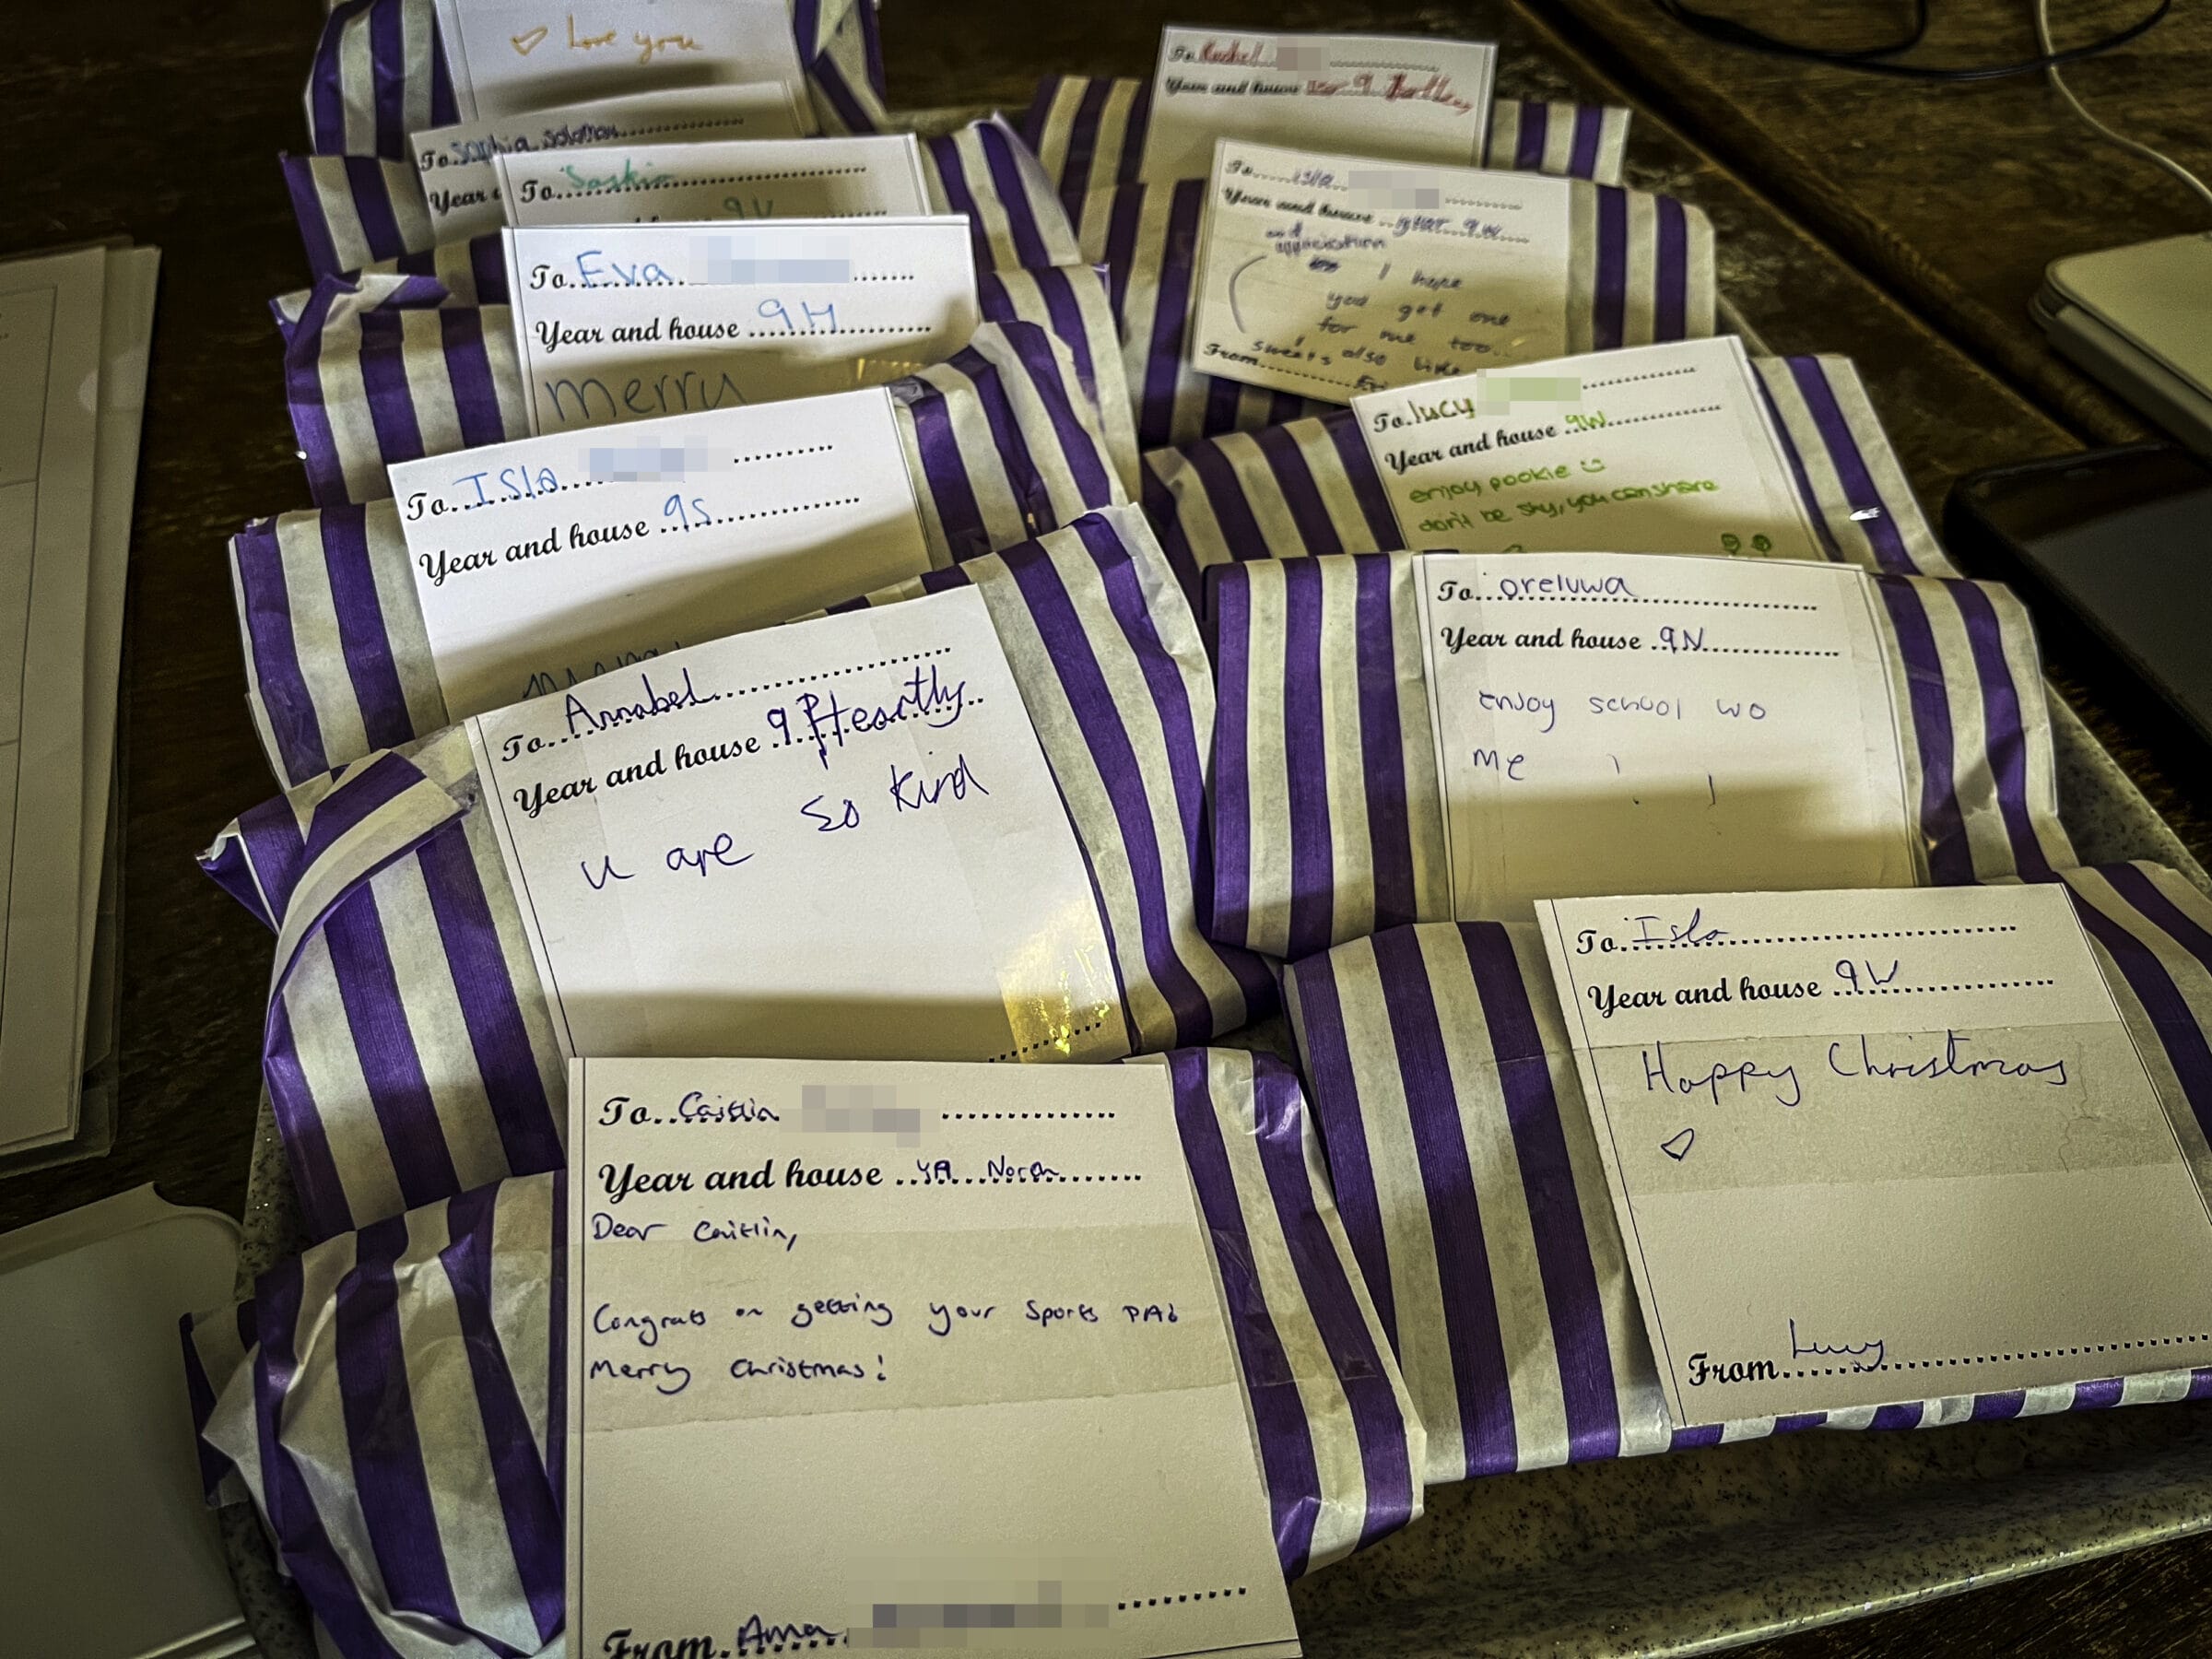 ♡ Love you
To Sophia Solomon
Year
To Saskia
9W
To Eva
Year and house 9H
merry
To Isla
Year and house 9S
To Annabel
Year and house 9 Heartly
u are so kind
To Caitlin
Year and house North
Dear Caitlin,
Congrats on getting your Sports
Merry Christmas!
From Ama
To Rachel
Year and house Year 9
To Isla
Year and house year 9W
and appreciation
I hope
you get one
for me too..
sweets also like
From
To lucy
Year and house 9W
enjoy pookie
don't be shy, you can share
To oreluwa
Year and house 9N
enjoy school wo
me ! !
To Isla
Year and house 9W
Happy Christmas
♡
From Lucy